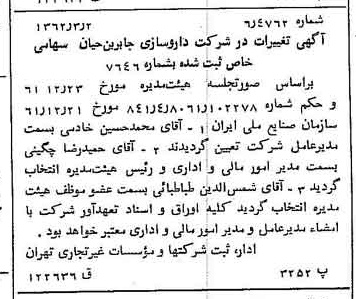 شماره ۶٫۴۷۶۲ ۱۳۶۲٫۳٫۲
آگهی تغییرات در شرکت داروسازی جابربن‌حیان سهامی
خاص ثبت شده بشماره ۷۶۴۶
براساس صورتجلسه هیئت‌مدیره مورخ ۶۱٫۱۲٫۲۳
و حکم شماره ۸۴۱٫۴٫۸۰۶۱٫۱۰۲۲۷۸ مورخ ۶۱٫۱۲٫۲۱
سازمان صنایع ملی ایران ۱ - آقای محمدحسین خادمی بسمت
مدیرعامل شرکت تعیین گردیدند ۲ - آقای حمیدرضا چگینی
بسمت مدیر امور مالی و اداری و رئیس هیئت‌مدیره انتخاب
گردید ۳ - آقای شمس‌الدین طباطبائی بسمت عضو موظف هیئت
مدیره انتخاب گردید کلیه اوراق و اسناد تعهدآور شرکت با
امضاء مدیرعامل و مدیر امور مالی و اداری معتبر خواهد بود .
اداره ثبت شرکتها و مؤسسات غیرتجاری تهران
پ ۳۲۵۲ ق ۱۲۲۶۳۶